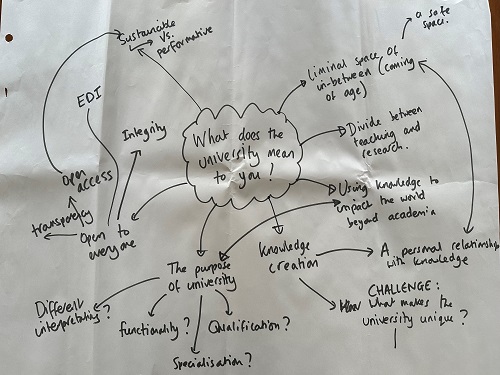 a safe
space.
Sustainable
vs.
performative
Liminal space of
in-between (coming
of age)
EDI
Integrity
What does the
university mean
to you?
Divide between
teaching and
research.
Open
access
transparency
Open to
everyone
Using knowledge to
unpack the world
beyond academia
The purpose
of university
Knowledge
creation
A personal relationship
with knowledge
Different
interpretations?
functionality?
Qualification?
Specialisation?
CHALLENGE:
what makes the
university unique?